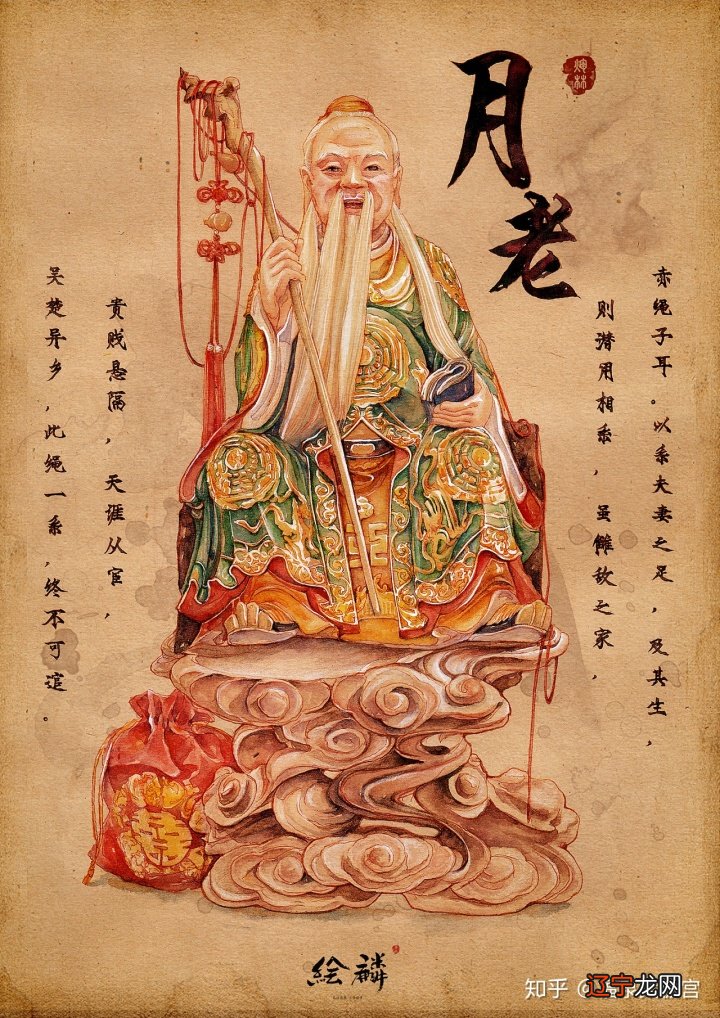 月老
赤绳子耳。以系夫妻之足，及其生，
则潜用相系，虽雠敌之家，
贵贱悬隔，天涯从宦，
吴楚异乡，此绳一系，终不可逭。
绘麟
知乎
辽宁龙网
宫